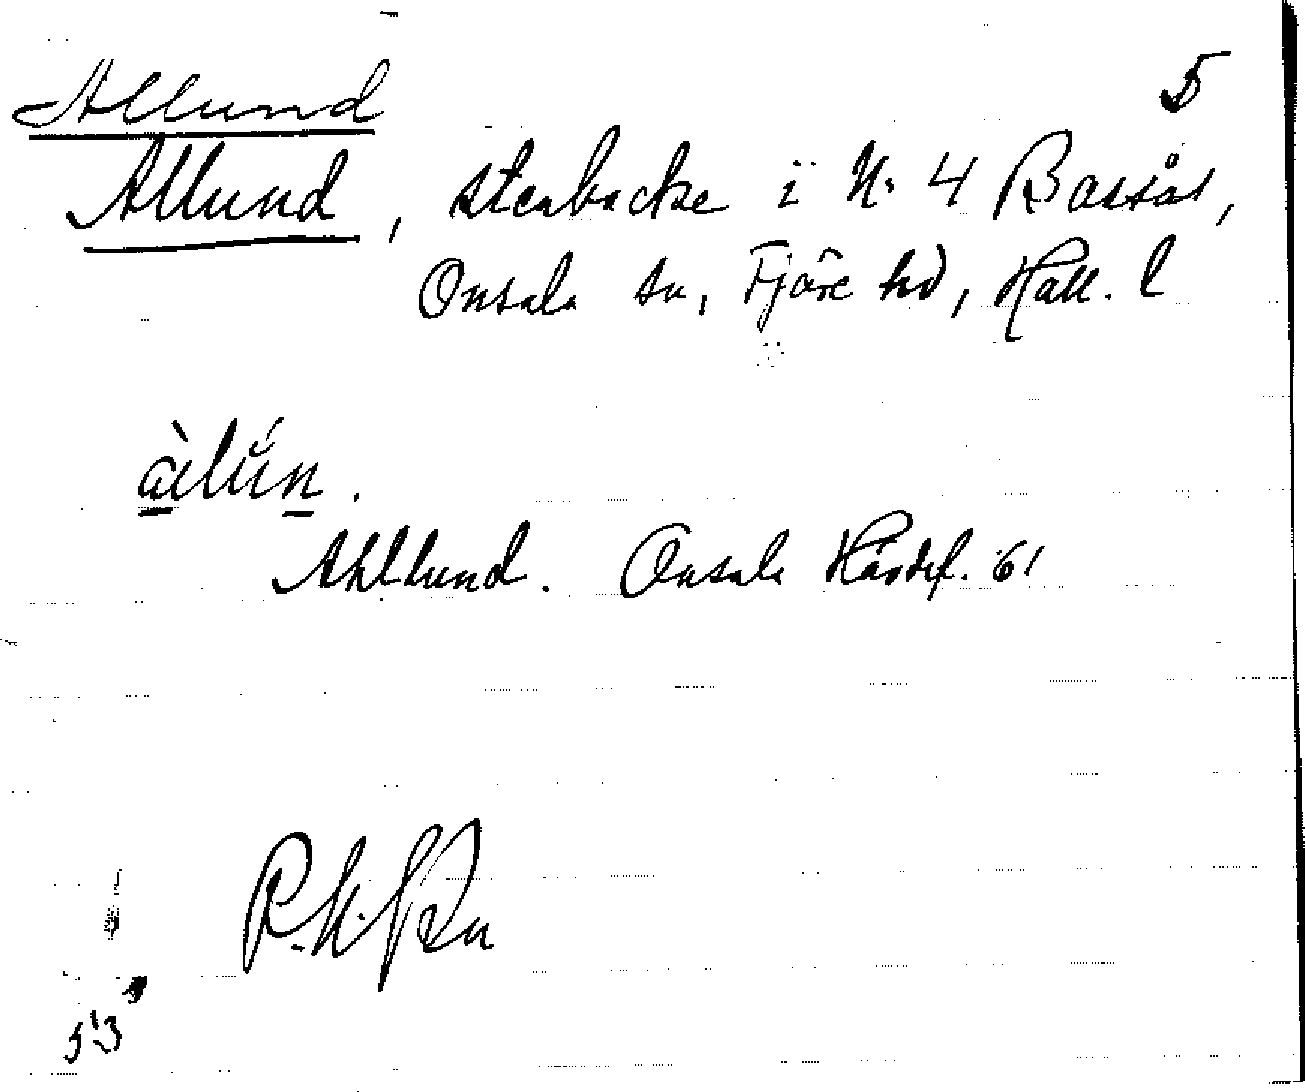 Allund 5
Allund, stenbacke i N: 4 Bassås,
Onsala sn, Fjäre hd, Hall. l
Ahllund. Onsala Hårdef. 61
53